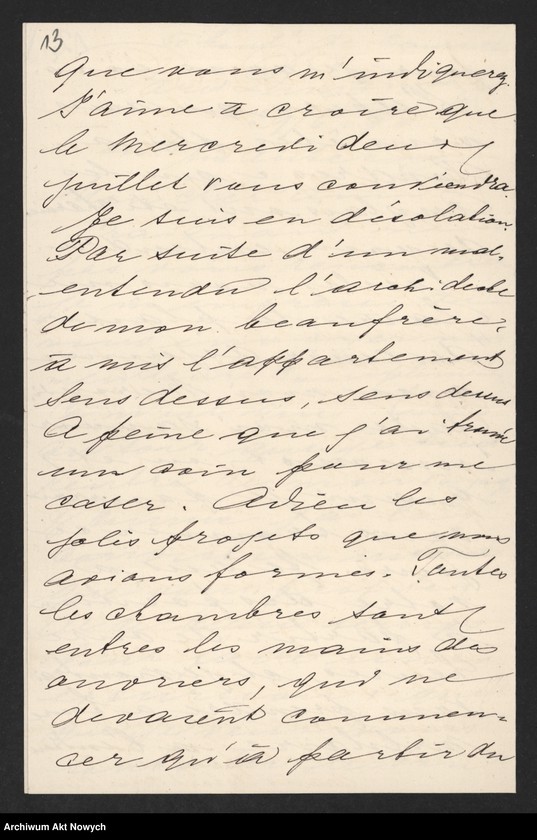 13
que vous m'indiquerez.
J'aime à croire que
le Mercredi deux
juillet vous conviendra.
Je suis en désolation.
Par suite d'un mal-
entendu l'architecte
de mon beaufrère,
a mis l'appartement
sens dessus, sens dessous
A peine que j'ai trouvé
un coin pour me
caser. Adieu les
jolis projets que nous
avions formés. Toutes
les chambres sont
entres les mains des
ouvriers, qui ne
devaient commen-
cer qu'à partir du
Archiwum Akt Nowych